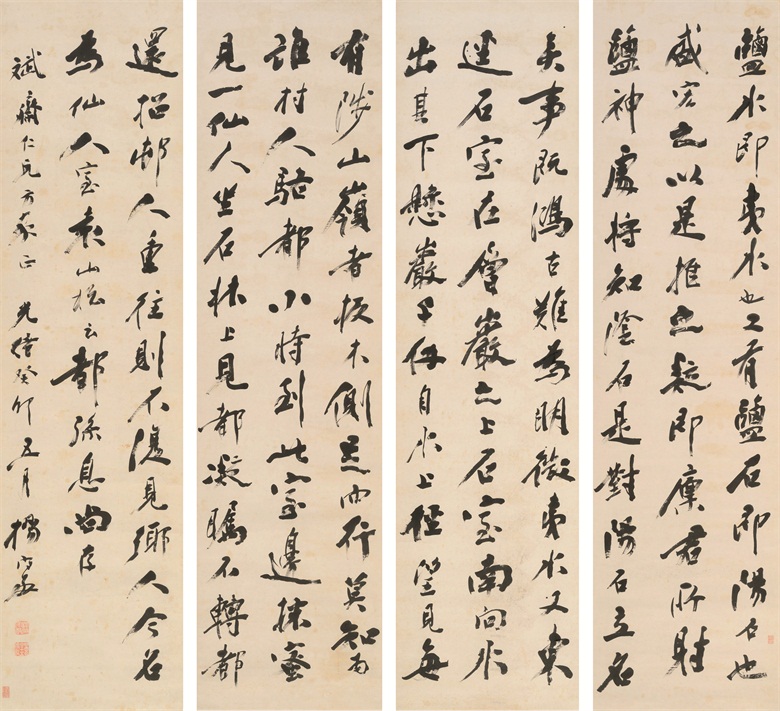 鹽水即夷水也又有鹽石即陽石也
盛宏之以是推之疑即廩君所射
鹽神處將知陰石是對陽石立名
矣事既鴻古難為明徵夷水又東
逕石室在層巖之上石室南向水
出其下懸巖千仞自水上徑望見每
有陟山嶺者扳木側足而行莫知其
誰村人駱都小時到此室邊採蜜
見一仙人坐石牀上見都凝矚不轉都
還招邨人重往則不復見鄉人今名
為仙人室袁山松云都孫息尚存
斌齋仁兄方家正 光緒癸卯五月 楊守敬